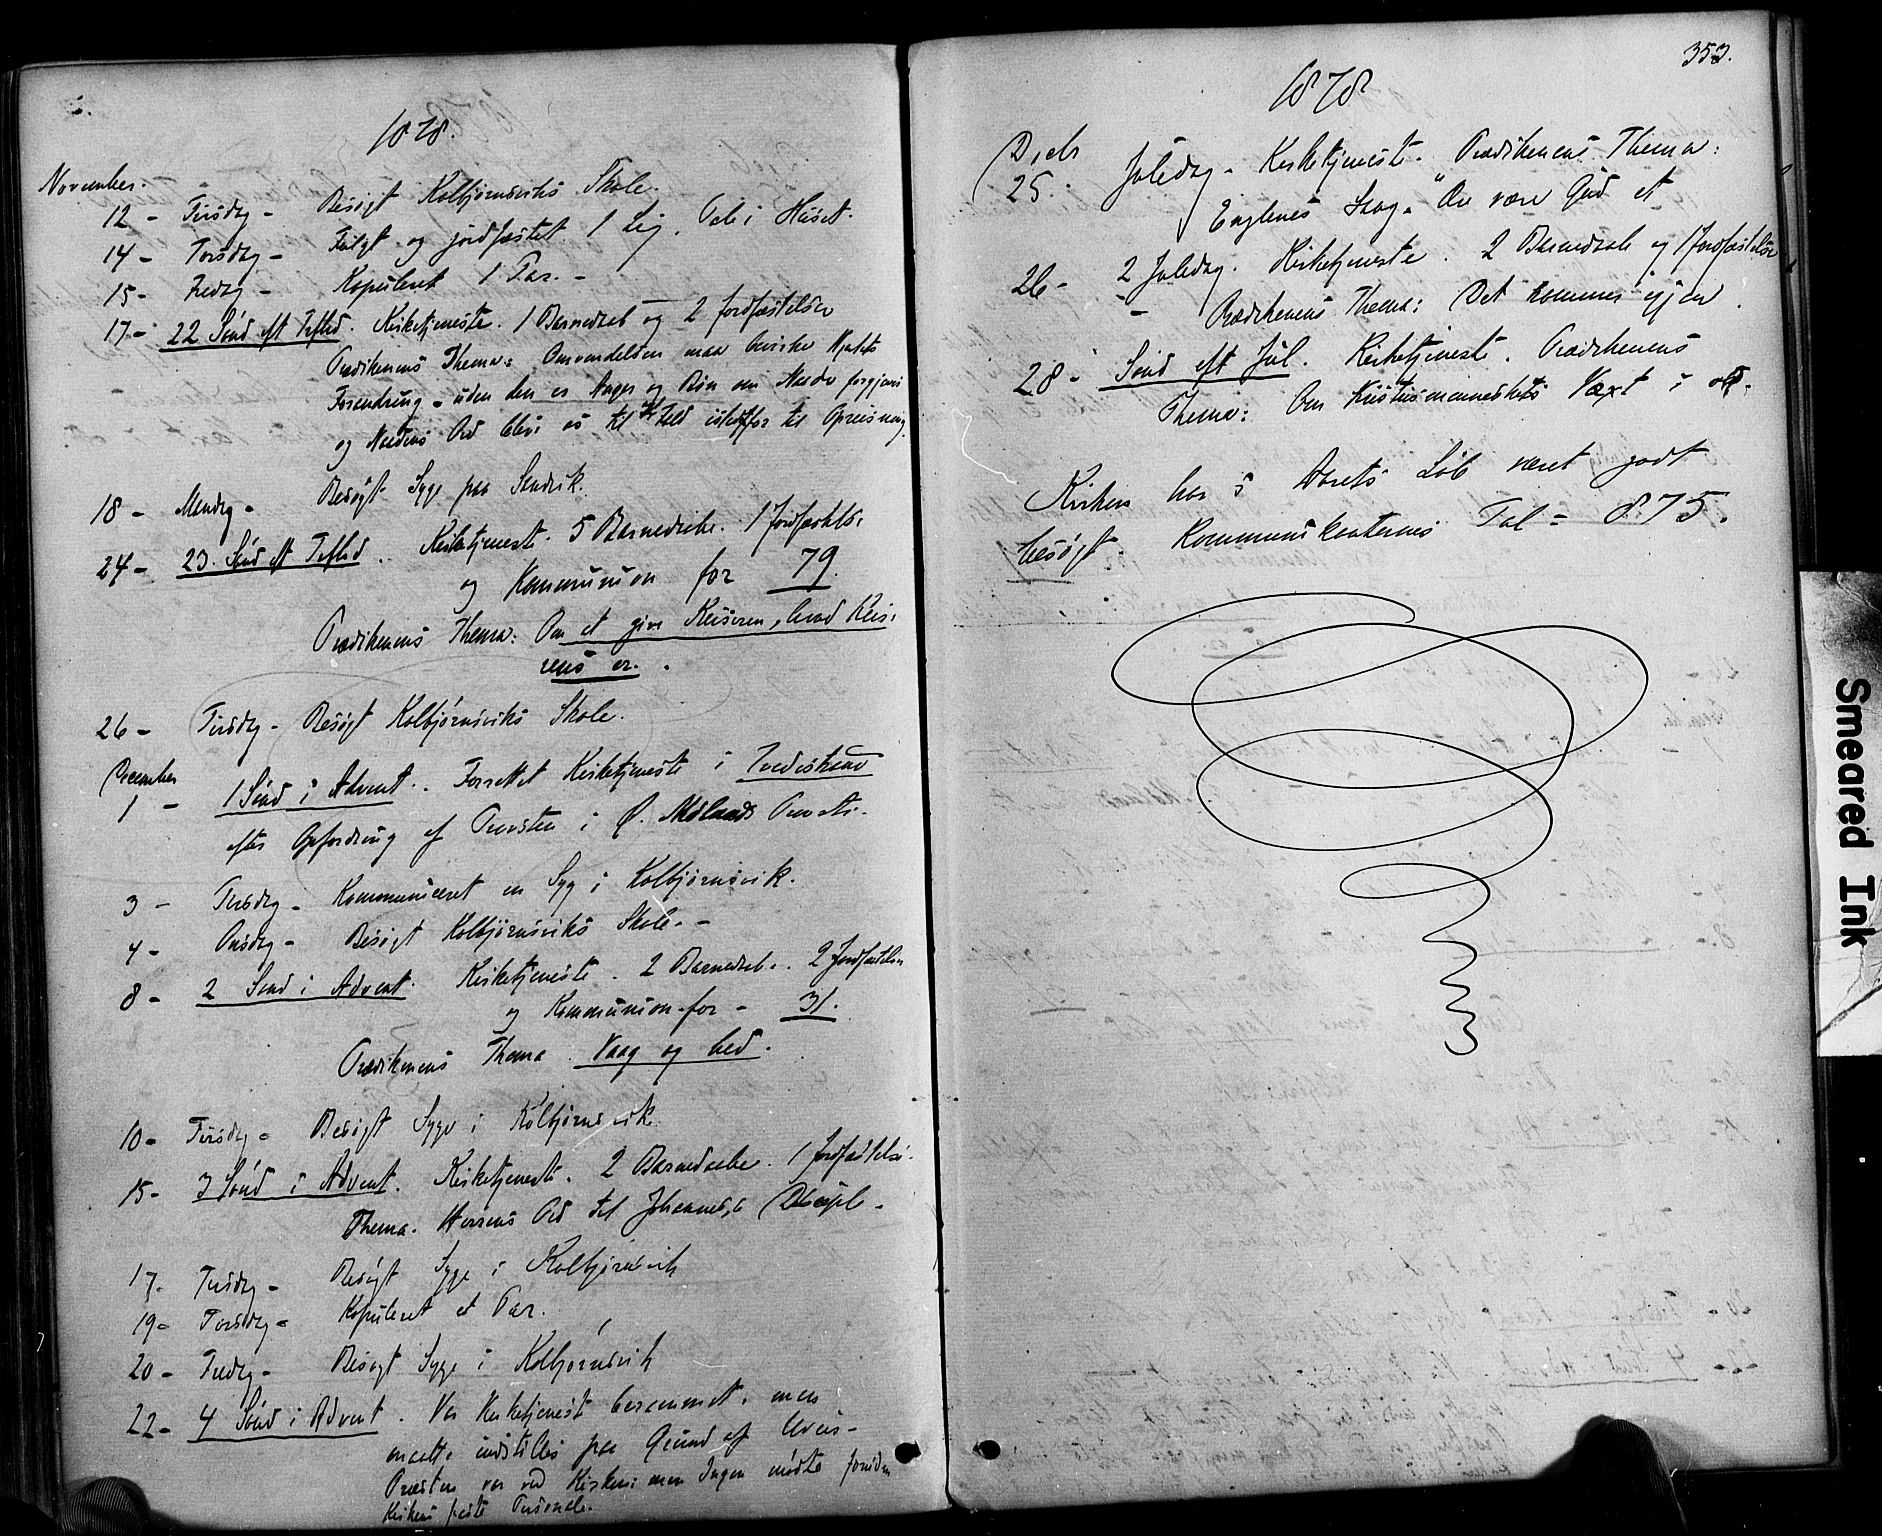 1878.
November.
12 - Tirsdag - Besøgt Kolbjørnsviks Skole.
14 - Torsdag - Fulgt og jordfæstet 1 Lig. Tale i Huset.
15 - Fredag - Kopuleret 1 Par. -
17 - 22 Sønd eft Trftd. Kirketjeneste. 1 Barnedaab og 2 Jordfæstelser
Prædikenens Thema: Omvendelsen maa bevirke Hjertets
Forandring - uden den er Anger og Bøn om Naade forgjæves
og Naadens Ord blive os til Fald istedetfor til Opreisning.
18 - Mandag - Besøgt Syge paa Sandvik.
24 - 23. Sønd eft Trftd. Kirketjeneste. 5 Barnedaabe. 1 Jordfæstelse
og Kommunion for 79.
Prædikenens Thema: Om at give Keiseren, hvad Keise-
rens er.
26 - Tirsdag - Besøgt Kolbjørnsviks Skole.
December
1 - 1 Sønd i Advent. Forrettet Kirketjeneste i Tvedestrand
efter Opfordring af Provsten i Ø. Nedenæs Provsti.
3 - Tirsdag - Kommuniceret en Syg i Kolbjørnsvik.
4 - Onsdag - Besøgt Kolbjørnsviks Skole. -
8 - 2 Sønd i Advent. Kirketjeneste. 2 Barnedaab. 2 Jordfæstelser
og Kommunion for - 31.
Prædikenens Thema. Vaag og bed.
10 - Tirsdag - Besøgt Syge i Kolbjørnsvik
15 - 3 Sønd i Advent. Kirketjeneste. 2 Barnedaabe. 1 Jordfæstelse.
Thema. Herrens Ord til Johannes's Disciple.
17. Tirsdag - Besøgt Syge i Kolbjørnsvik
19 - Torsdag - Kopuleret et Par.
20 - Fredag - Besøgt Syge i Kolbjørnsvik
22 - 4 Sønd i Advent. Var Kirketjeneste berammet, men
maatte indstilles paa Grund af Uveir -
Præsten var ved Kirken; men Ingen mødte foruden
Kirkens faste Personale.
353.
1878
Decbr
25. Juledag. Kirketjeneste. Prædikenens Thema:
Englenes Sang. "Ære være Gud etc
26 - 2 Juledag. Kirketjeneste. 2 Barnedaab og 1 Jordfæstelse
- Prædikenens Thema: Det kommer igjen.
28 - Sønd eft Jul. Kirketjeneste. Prædikenens
Thema: Om Kristusmenneskets Væxt i os.
Kirken har i Aarets Løb været godt
besøgt. Kommunikanternes Tal = 875.
Smeared Ink